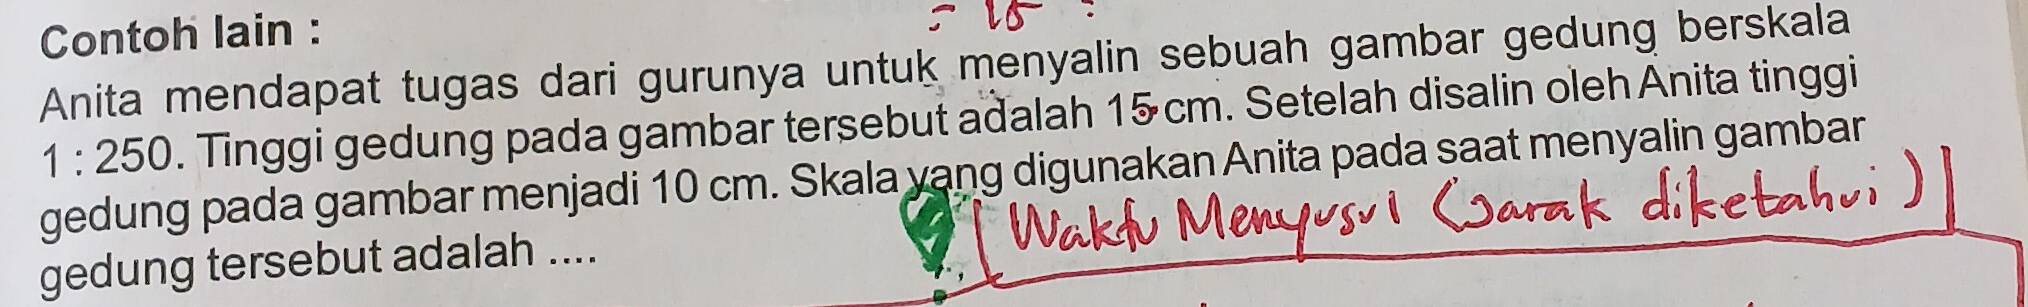 = 15 :
Contoh lain :
Anita mendapat tugas dari gurunya untuk menyalin sebuah gambar gedung berskala
1 : 250. Tinggi gedung pada gambar tersebut adalah 15 cm. Setelah disalin oleh Anita tinggi
gedung pada gambar menjadi 10 cm. Skala yang digunakan Anita pada saat menyalin gambar
gedung tersebut adalah ....
Waktu Menyusul (Jarak diketahui)